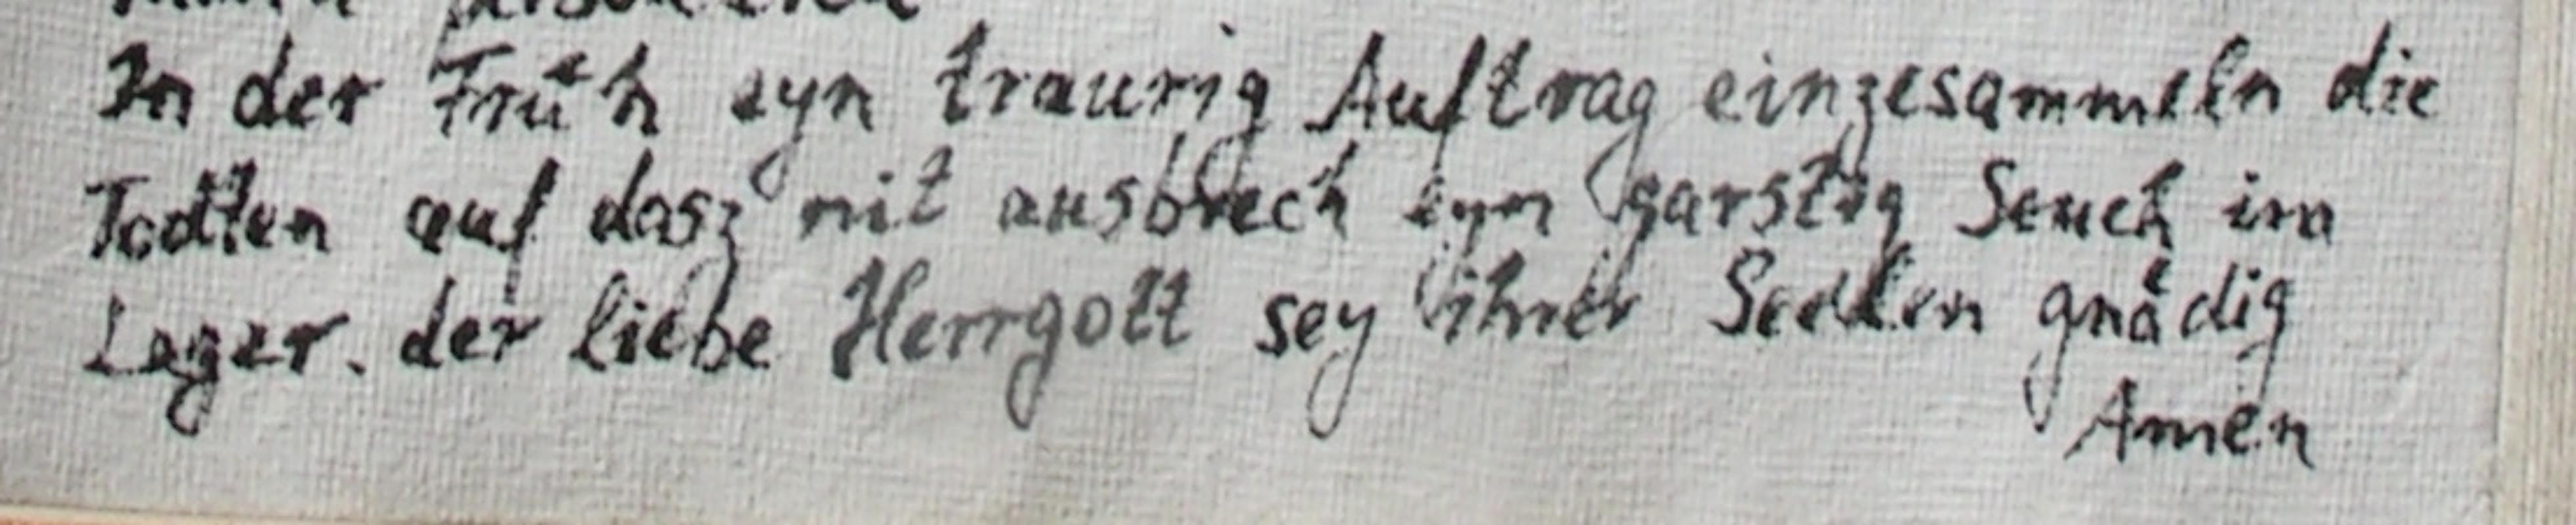 In der Früh eyn traurig Auftrag einzesammeln die
Todten auf dasz nit ausbrech eyn garstig Seuch im
Lager. der liebe Herrgott sey ihrer Seelen gnädig
Amen